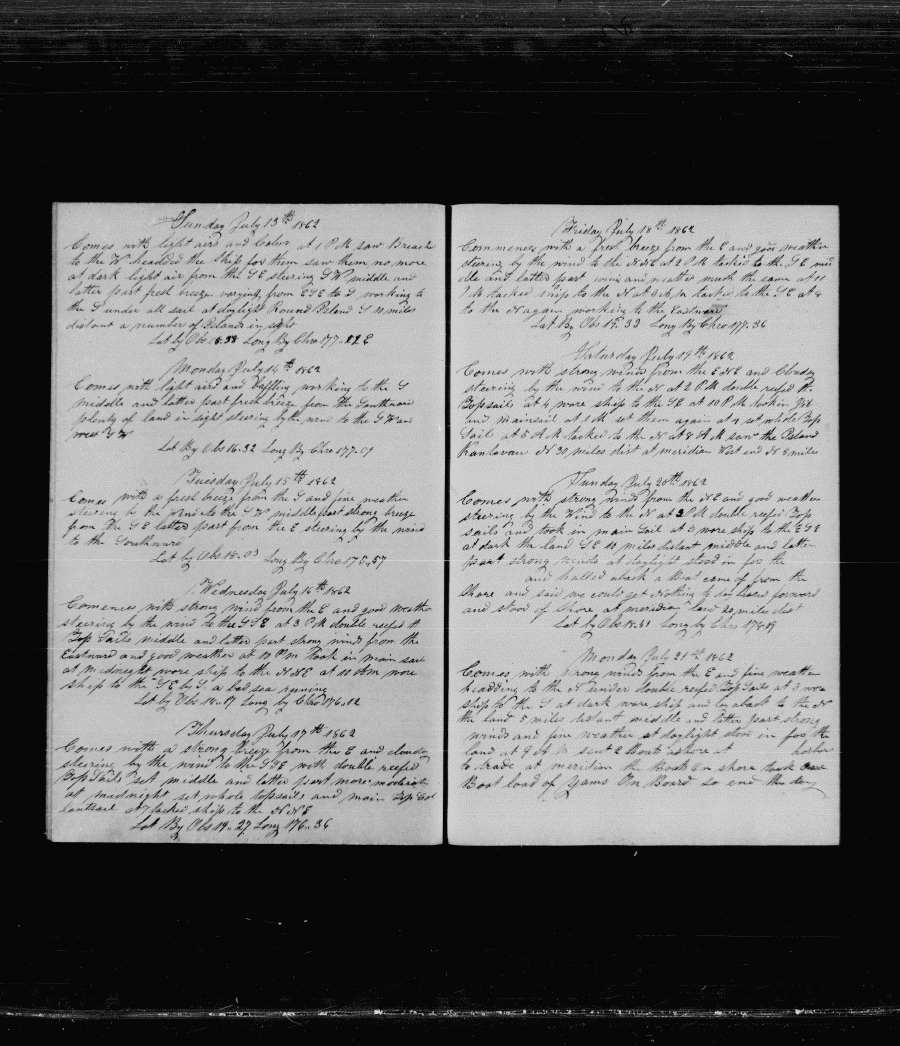 Sunday July 13th 1862
Comes with light airs and Calms at 1 P M saw Breach
to the W headded the Ship for them saw them no more
at dark light air from the S E steering S W middle and
latter part fresh breeze varying from ESE to S working to
the S under all sail at daylight Round Island S 10 miles
distant a number of Islands in sight
Lat by Obs 16.38 Long By Chro 177-22 E
Monday July 14th 1862
Comes with light airs and baffling working to the S
middle and latter part fresh breeze from the Southward
plenty of land in sight steering by the wind to the S W and
west S W
Lat By Obs 16-32 Long By Chro 177-09
Tuesday July 15th 1862
Comes with a fresh breeze from the S and fine weather
steering by the wind to the S W middle part strong breeze
from the S E latter part from the E steering by the wind
to the Southward
Lat by Obs 18-03 Long By Chro 176-57
Wednesday July 16th 1862
Comences with strong wind from the E and good weather
steering by the wind to the S S E at 3 P M double reefed the
Top Sails middle and latter part strong winds from the
Eastward and good weather at 10 P m took in main sail
at midnight wore ship to the N N E at 10 A m wore
ship to the S E by S. a bad sea runing
Lat by Obs 19-17 Long by Chro 176-12
Thursday July 17th 1862
Comes with a strong breeze from the E and cloudy
steering by the wind to the S S E with double reefed
Top Sails set middle and latter part more moderate
at madnight set whole topsails and main Top Gal
lantsail at 7 tacked ship to the N N E
Lat By Obs 19-27 Long 176-36
Friday July 18th 1862
Commences with a fresh breeze from the E and good weather
steering by the wind to the N N E at 2 P M tacked to the S E mid
dle and latter part wind and weather much the same at 11
P M tacked ship to the N at 3 A m tacked to the S E at 8
to the N again working to the Eastward
Lat By Obs 19.33 Long By Chro 177.36
Saturday July 19th 1862
Comes with strong winds from the E N E and Cloudy
steering by the wind to the N at 2 P M double reefed the
Topsails at 4 wore ship to the S E at 10 P M took in Jib
and mainsail at 1 A M set them again at 4 set whole Top
Sails at 5 A M tacked to the N at 8 A M saw the Island
Kantavau N 30 miles dist at meridian West end N 5 miles
Sunday July 20th 1862
Comes with strong winds from the N E and good weather
steering by the Wind to the N at 2 P M double reefed Top
sails and took in main Sail at 3 wore ship to the E S E
at dark the land S E 10 miles distant middle and latter
part strong winds at daylight stood in for the
and halled aback a Boat came of from the
Shore and said we could get Nothing to day braced forward
and stood of Shore at meridian land 20 miles dist
Lat by Obs 18.51 Long by Chro 178-19
Monday July 21st 1862
Comes with strong winds from the E and fine weather
headding to the N under double reefed Top Sails at 3 wore
ship to the S at dark wore ship and lay aback to the N
the land 5 miles distant middle and latter part strong
winds and fine weather at daylight stood in for the
land at 9 A M sent 2 Boats ashore at harbor
to trade at meridian the Boats On shore took One
Boat load of yams On Board so end the day